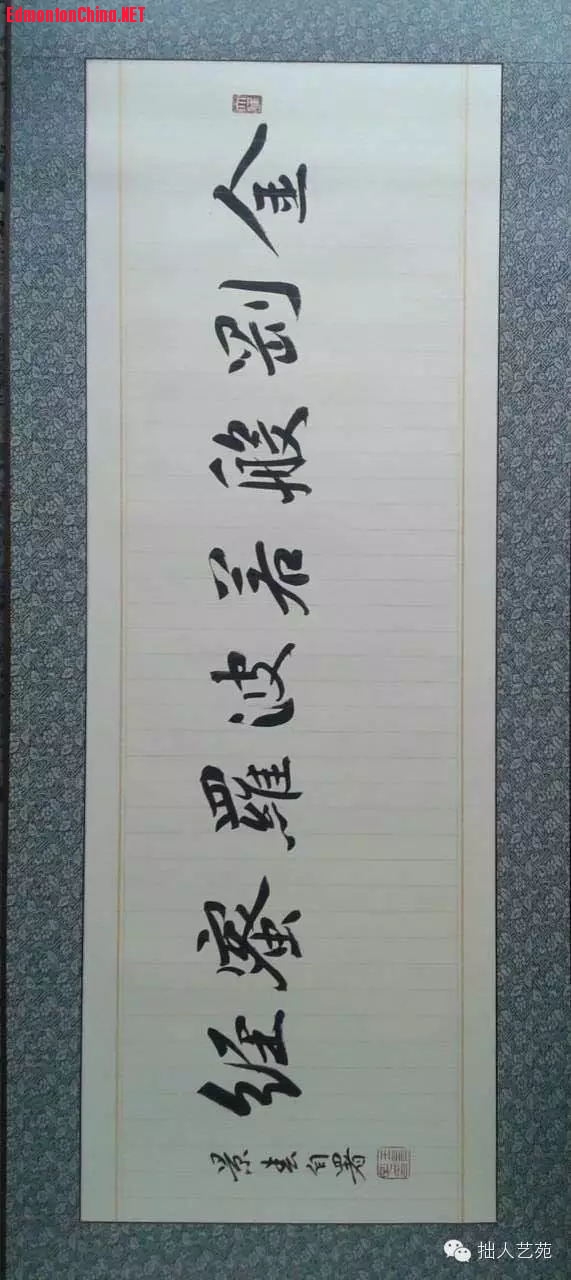 EdmontonChina.NET
金剛般若波羅蜜經
景春自署
拙人艺苑